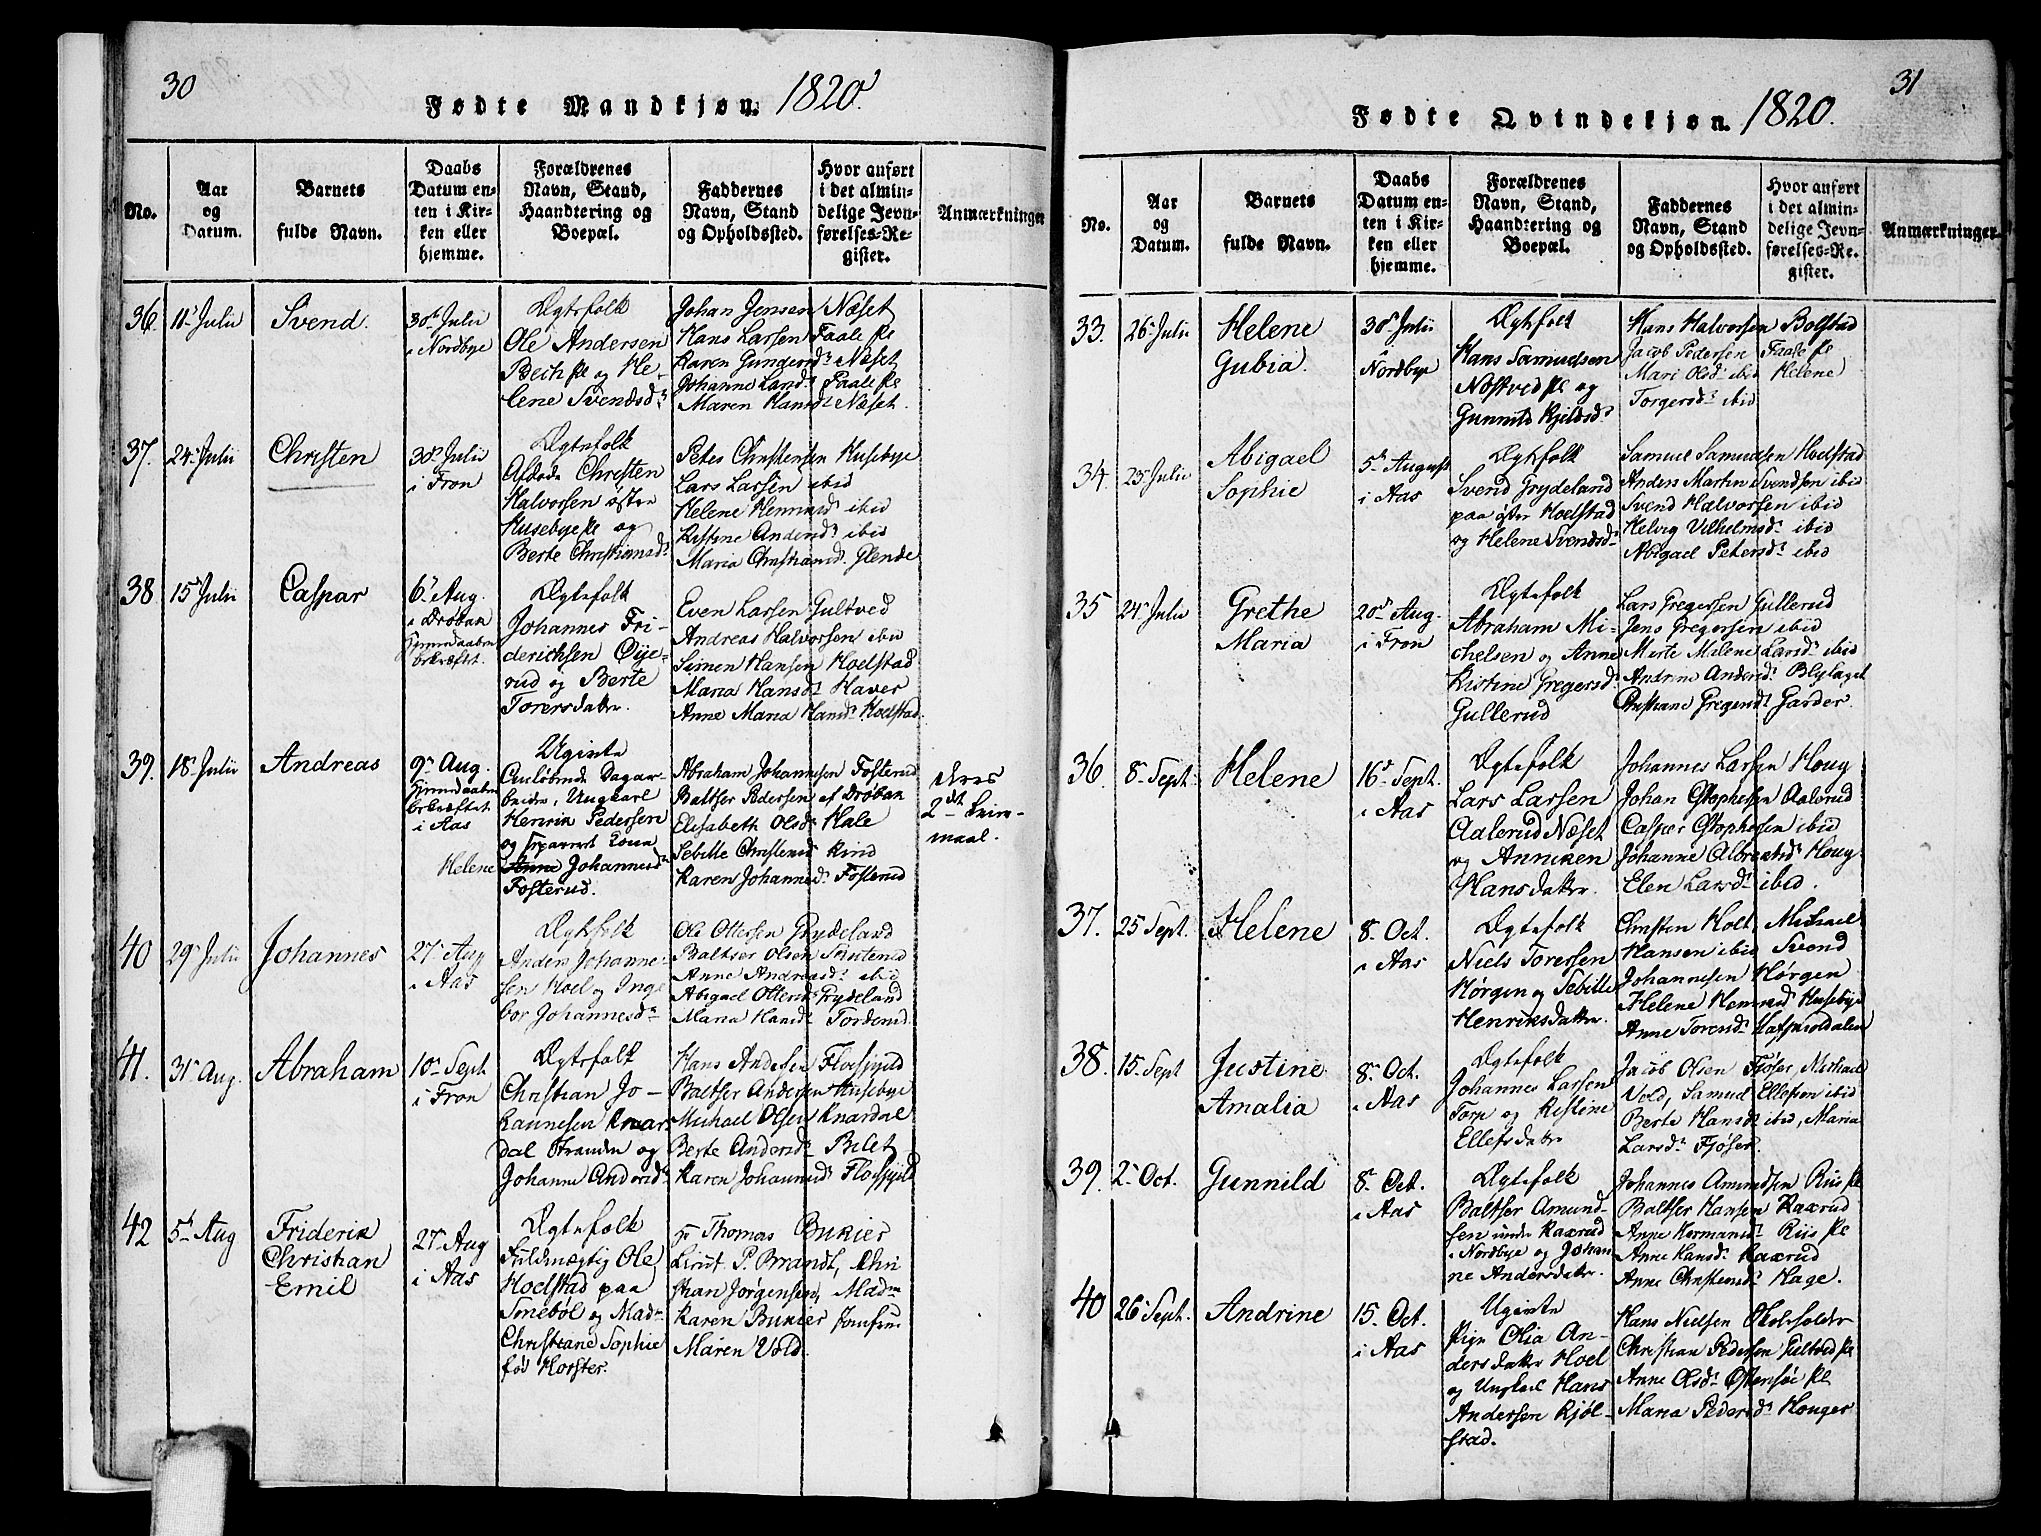 30
Fødte Mandkjøn. 1820.
No.
Aar
og
Datum.
Barnets
fulde Navn.
Daabs
Datum en-
ten i Kir-
ken eller
hjemme.
Forældrenes
Navn, Stand,
Haandtering og
Boepæl.
Faddernes
Navn, Stand
og Opholdssted.
Hvor anført
i det almin-
delige Jevn-
førelses-Re-
gister.
Anmærkninger
36.
11 Julii
Svend.
30 Julii
i Nordbye
Ægtefolk
Ole Andersen
Bech Pl og He-
lene Svendsdr
Johan Jensen Næset
Hans Larsen Faale Pl
Karen Gundersdr Næset
Johanne Larsdr Faale Pl
Maren Hansdr Næset.
37.
24 Julii
Christen
30 Julii
i Fron
Ægtefolk
Afdøde Christen
Halvorsen østre
Husebye Pl og
Berte Christiansdr
Peter Christensen Husebye
Lars Larsen ibid
Helene Henrmdr ibid
Kistine Andersdr ibid
Maria Christiansdr Glende
38
15 Julii
Caspar
6 Aug.
i Drøbak
Hjemmedaaben
bekræftet.
Ægtefolk
Johannes Fri-
derichsen Øije-
rud og Berte
Torersdatter.
Even Larsen Gultved
Andreas Halvorsen ibid
Simen Hansen Hoelstad
Maria Hansdr Haver
Anne Maria Hansdr Hoelstad.
39.
18 Julii
Andreas
9 Aug.
Hjemmedaaben
bekræftet.
i Aas
Uægte
Henrik Pedersen
Helene Anne Johannesdr
Fosterud.
Abraham Johannesen Fosterud
Baltser Pedersen af Drøbak
Elisabeth Olsdr Hale
Sebille Christensdr Rind
Karen Johannesdr Fosterud
deres
2det Leier-
maal.
40
29 Julii
Johannes
27 Aug
i Aas
Ægtefolk
Anders Johanne-
sen Hoel og Inge
bor Johannesdr
Ole Ottersen Grydeland
Baltser Olsen Skuterud
Anne Andreasdr ibid
Abigael Ottersdr Grydeland
Maria Hansdr Torderud.
41.
31 Aug.
Abraham
10 Sept
i Fron
Ægtefolk
Christian Jo-
hannesen Knar-
dal Stranden og
Johanne Andersdr
Hans Andersen Floespjeld
Baltser Andersen Husebye
Michael Olsen Knardal
Berte Andersdr Bilet
Karen Johannesdr Floespjeld
42
5 Aug
Friderik
Christian
Emil
27 Aug
i Aas
Ægtefolk
Fuldmægtig Ole
Hoelstad paa
Smebøl og Madm
Christiane Sophie
fød Horster.
Hr Thomas Bukier
Lieut. P. Brandt, Chri
stian Jørgensen, Madm
Karen Bukier Jomfru
Maren Vold.
31
Fødte Qvindekjøn. 1820.
No.
Aar
og
Datum.
Barnets
fulde Navn.
Daabs
Datum en-
ten i Kir-
ken eller
hjemme.
Forældrenes
Navn, Stand,
Haandtering og
Boepæl.
Faddernes
Navn, Stand
og Opholdssted.
Hvor anført
i det almin-
delige Jevn-
førelses-Re-
gister.
Anmærkninger.
33.
26 Julii
Helene
Gubia.
30 Julii
i
Nordbye
Ægtefolk
Hans Samuelsen
Nøstved Pl og
Gunnild Kjeldsdr
Hans Halvorsen Bolstad
Jacob Pedersen Faale Pl
Mari Olsdr ibid Helene
Torgersdr ibid
34.
23 Julii
Abigael
Sophie
5 August
i Aas
Ægtefolk
Svend Grydeland
paa øster Hoelstad
og Helene Svendsdr
Samuel Samuelsen Hoelstad
Anders Martin Svendsen ibid
Svend Halvorsen ibid
Helvig Vilhelmsdr ibid
Abigael Petersdr ibid
35
24 Julii
Grethe
Maria
20 Aug.
i Fron
Ægtefolk
Abraham Mi-
chelsen og Anne
Kistine Gregersdr
Gullerud
Lars Gregersen Gullerud
Jens Gregersen ibid
Merte Malene Larsdr ibid
Andrine Andersdr Blylaget
Christiane Gregersdr Garder.
36.
8 Sept.
Helene
16 Sept.
i Aas
Ægtefolk
Lars Larsen
Aalerud Næset
og Anniken
Hansdatter.
Johannes Larsen Houg
Johan Cstophersen Aalerud
Casper Cstophersen ibid
Johanne Albretsdr Houg
Elen Larsdr ibid.
37.
25 Sept.
Helene
8 Oct.
i Aas
Ægtefolk
Niels Toresen
Hørgen og Sebille
Henriksdatter.
Christen Holt, Michael
Hansen ibid Svend
Johannesen Hørgen
Helene Henrmdr Husebye
Anne Toresdr
38.
15 Sept
Justine
Amalia
8 Oct.
i Aas
Ægtefolk
Johannes Larsen
Torp og Kistine
Ellefsdatter
Jacob Olsen Fjøser, Michael
Vold, Samuel Ellefsen ibid
Berte Hansdr ibid, Maria
Larsdr Fjøser.
39.
2 Oct.
Gunnild
8 Oct.
i Aas
Ægtefolk
Baltser Amund-
sen under Kaxrud
i Nordbye og Johan
ne Andersdatter.
Johannes Amundsen Riis Pl
Baltser Hansen Kaxrud
Anne Hermansdr Riis Pl
Anne Hansdr Kaxrud
Anne Christensdr Hage.
40
26 Sept.
Andrine
15. Oct.
i Aas
Uægte
Pige Olia An-
dersdatter Hoel
og Ungkarl Hans
Andersen Kjøl-
stad.
Hans Nielsen Skolesolder
Christian Pedersen Gultved Pl
Anne Olsdr Østensøe Pl
Maria Pedersdr Houger